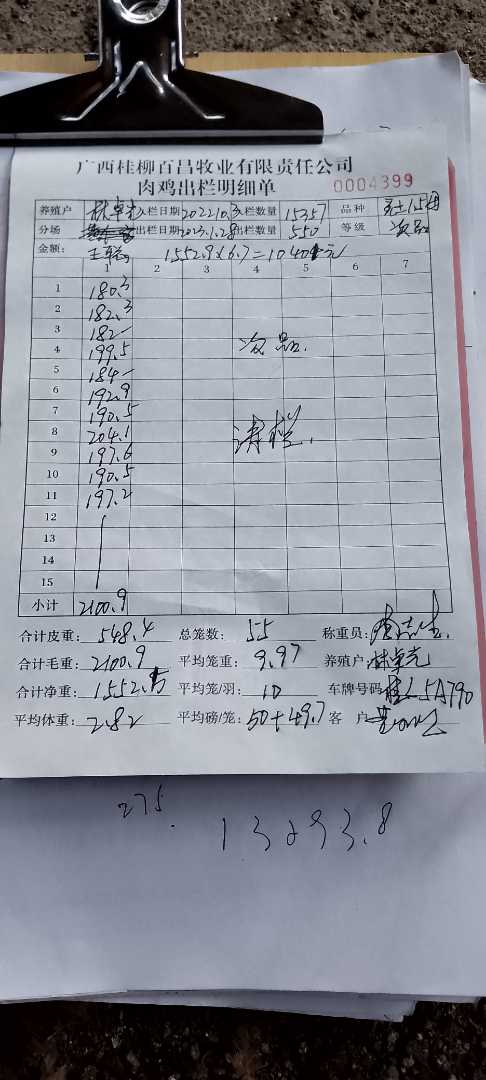 广西桂柳百昌牧业有限责任公司
肉鸡出栏明细单 0004399
养殖户 林卓 入栏日期 2022.10.3 入栏数量 15357 品种
分场 出栏日期 2023.1.28 出栏数量 550 等级 次品
金额: 1552.9×6.7=10404元
1 2 3 4 5 6 7
1 180.3
2 182.3
3 182-
4 199.5 次品.
5 184-
6 192.9
7 190.5
8 204.1 清栏.
9 197.6
10 190.5
11 197.2
12
13
14
15
小计 2100.9
合计皮重: 548.4 总笼数: 55 称重员:
合计毛重: 2100.9 平均笼重: 9.97 养殖户: 林卓
合计净重: 1552. 平均笼/羽: 10 车牌号码: 5A790
平均体重: 2.82 平均磅/笼: 50+49.7 客 户
275.
13293.8